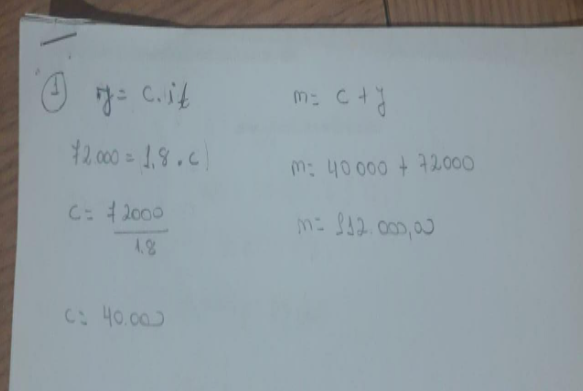 ① y = c.it
72000 = 1,8 . c
c = 72000
1,8
c = 40.000
m = c + y
m = 40 000 + 72000
m = 112.000,00